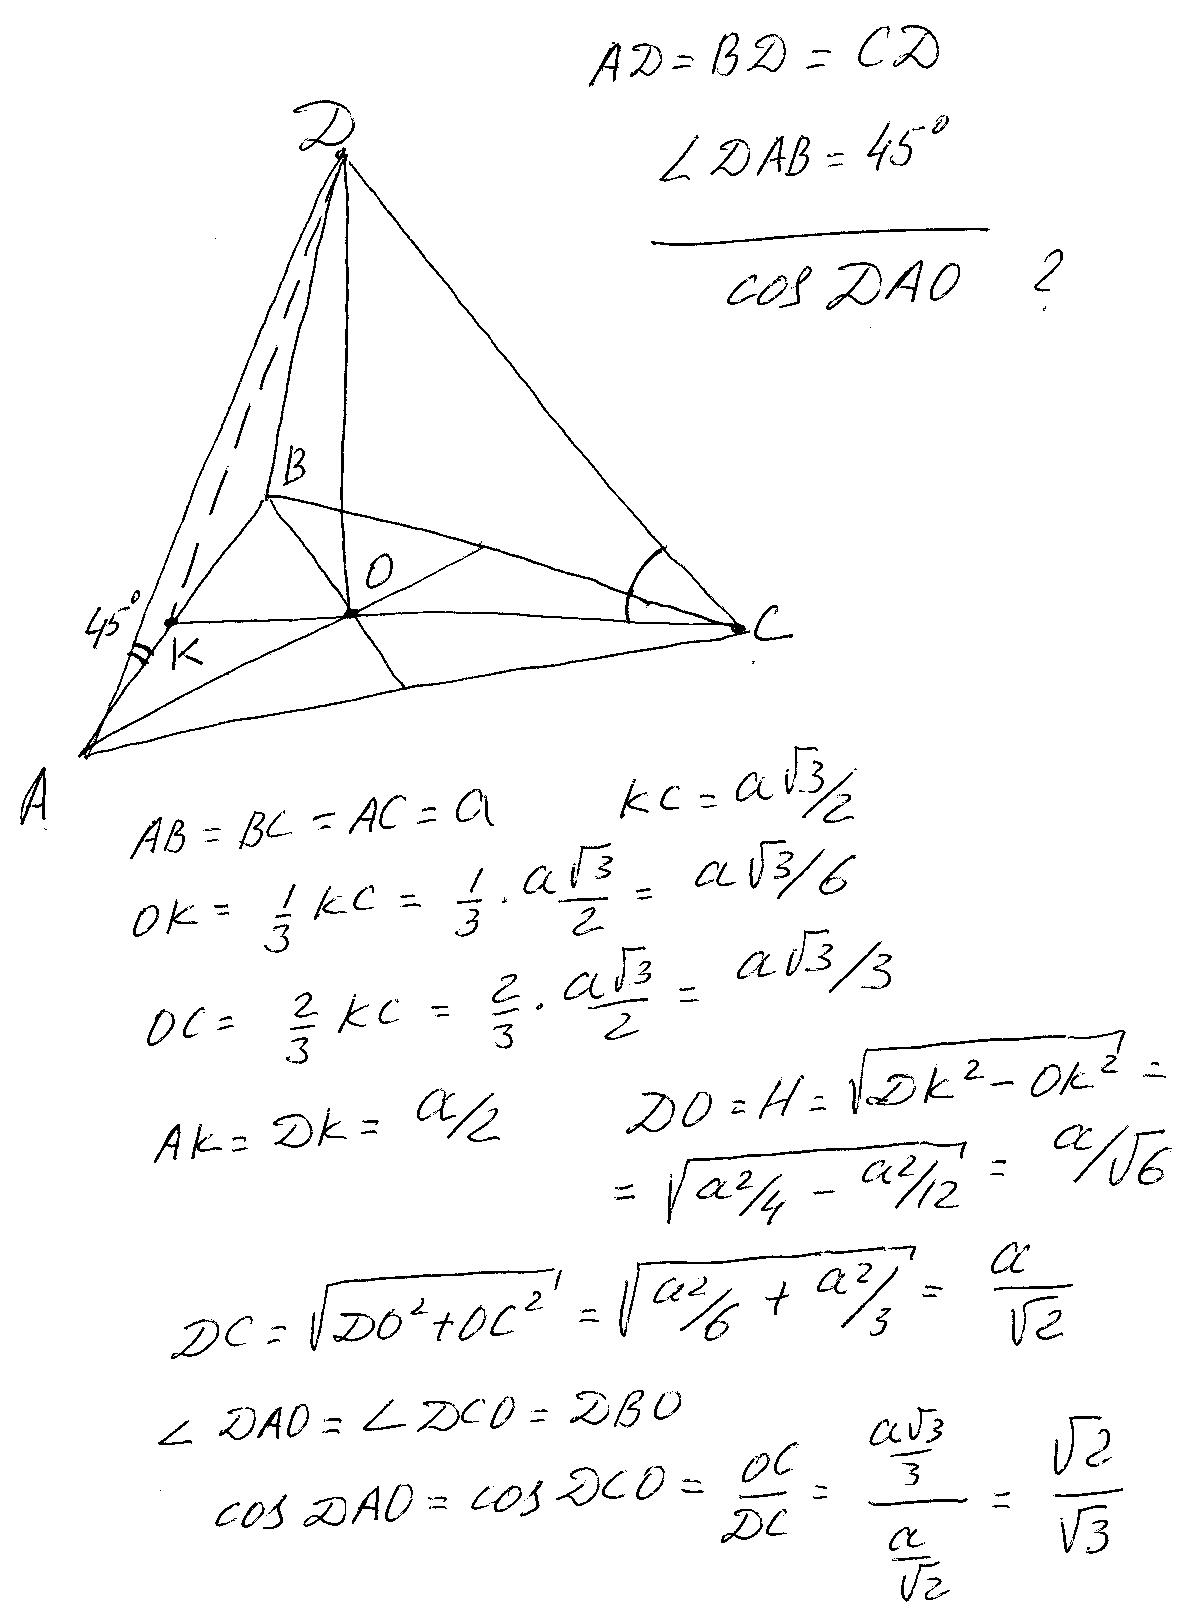 AD = BD = CD
∠DAB = 45°
cos DAO ?
D
B
O
45°
K
C
A
AB = BC = AC = a KC = a√3/2
OK = 1/3 KC = 1/3 · a√3/2 = a√3/6
OC = 2/3 KC = 2/3 · a√3/2 = a√3/3
AK = DK = a/2 DO = H = √(DK² - OK²) =
= √(a²/4 - a²/12) = a/√6
DC = √(DO² + OC²) = √(a²/6 + a²/3) = a/√2
∠DAO = ∠DCO = DBO
cos DAO = cos DCO = OC/DC = (a√3/3)/(a/√2) = √2/√3